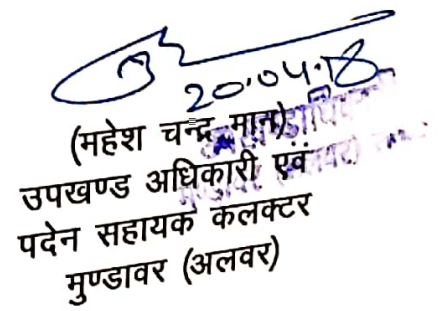 20.04.18
(महेश चन्द्र मान)
उपखण्ड अधिकारी एवं
पदेन सहायक कलक्टर
मुण्डावर (अलवर)